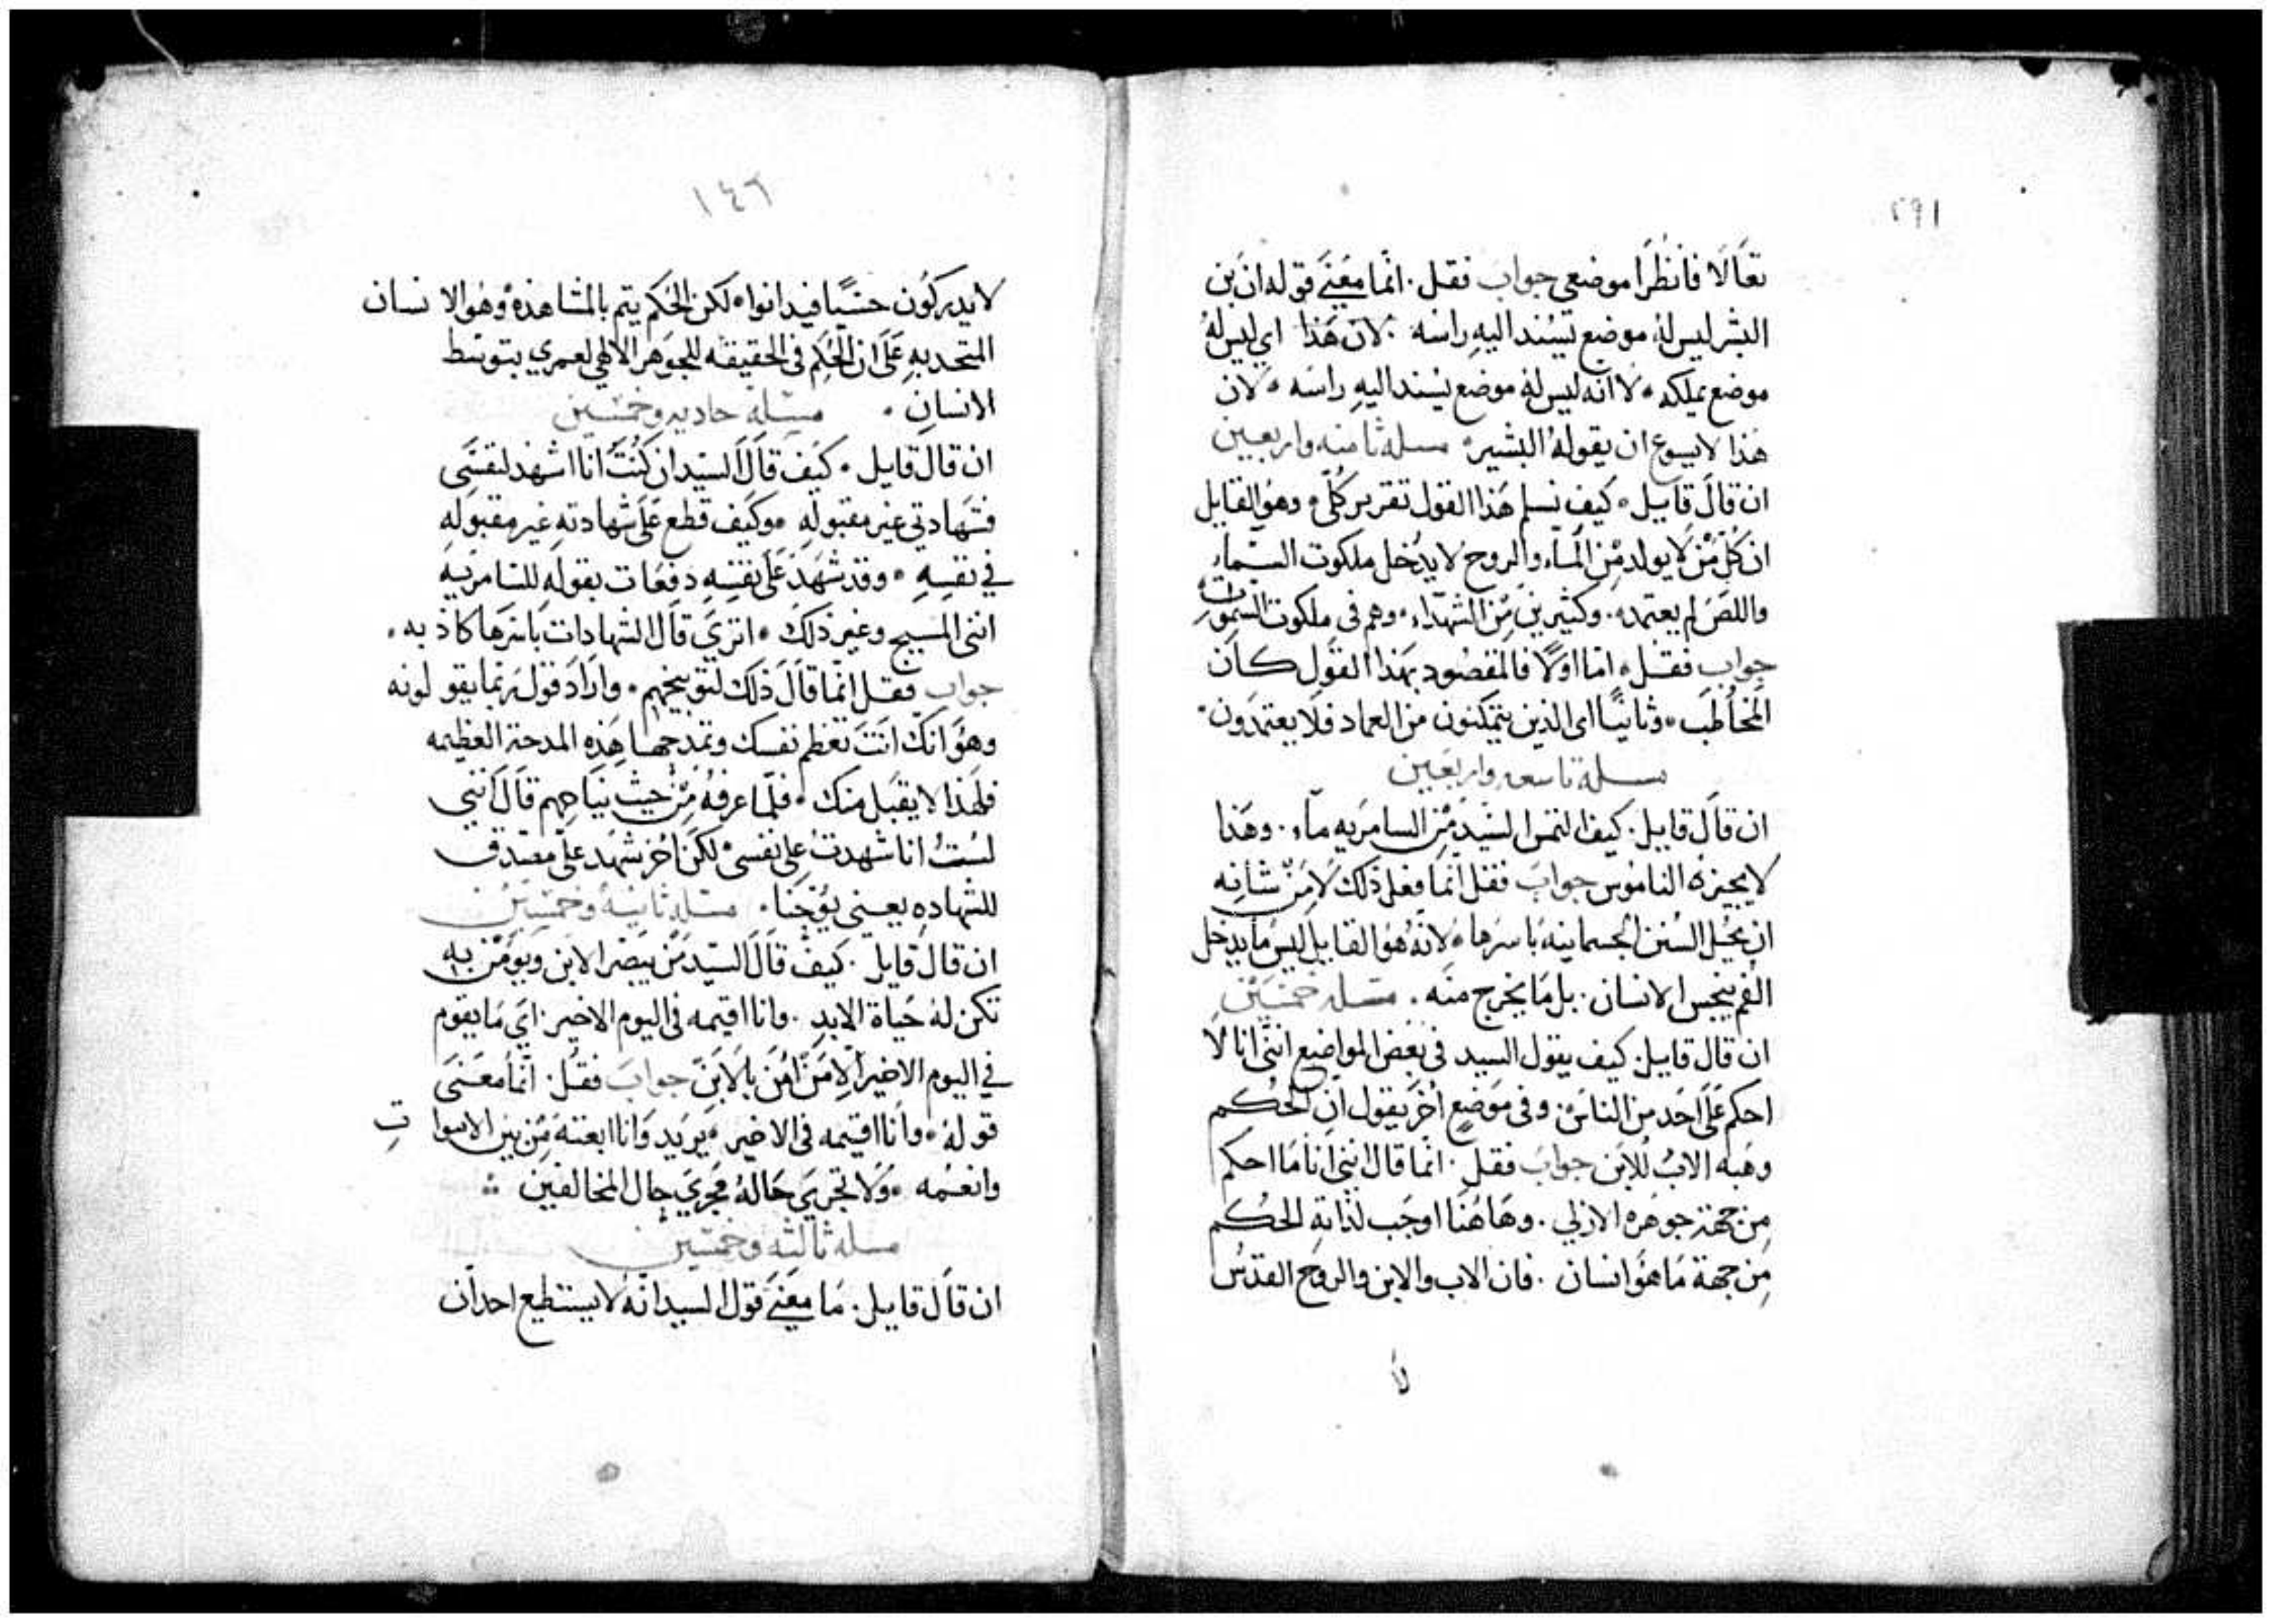 ٢٩١
تعالا فانظرا موضعي جواب فقل. انما معنى قوله ان بن
البشر ليس له موضع يسند اليه راسه. لان هذا اي ليس له
موضع يملكه. لا انه ليس له موضع يسند اليه راسه. لان
هذا لا يسوع ان يقوله البشير. مسله ثامنه واربعين
ان قال قاييل. كيف نسلم هذا القول تقرير كلي. وهو القايل
ان كل من لا يولد من الماء والروح لا يدخل ملكوت السماء
واللص لم يعتمد. وكثيرين من الشهداء. وهم في ملكوت السموات
جواب فقل. اما اولا فالمقصود بهذا القول كان
المخاطب. وثانيا اي الذين يتمكنون من العماد فلا يعتمدون.
مسله تاسعه واربعين
ان قال قاييل. كيف التمس السيد من السامريه ماء. وهذا
لا يجيزه الناموس جواب فقل انما فعل ذلك لا من شانه
ان يحل السنن الجسمانيه باسرها. لانه هو القايل ليس ما يدخل
الفم ينجس الانسان. بل ما يخرج منه. مسله خمسين
ان قال قاييل. كيف يقول السيد في بعض المواضع انني انا لا
احكم على احد من الناس. وفي موضع اخر يقول ان الحكم
وهبه الاب للابن جواب فقل. انما قال انني انا ما احكم
من جهة جوهره الازلي. وهاهنا اوجب لذاته الحكم
من جهة ما هو انسان. فان الاب والابن والروح القدس
لا
١٤٦
لا يدركون حسيا فيدانوا. لكن الحكم يتم بالمشاهده وهو الانسان
المتحد به على ان الحكم في الحقيقه للجوهر الالهي لعمري بتوسط
الانسان. مسله حاديه وخمسين
ان قال قاييل. كيف قال السيد ان كنت انا اشهد لنفسي
فشهادتي غير مقبوله. وكيف قطع على شهادته غير مقبوله
في نفسه. وقد شهد على نفسه دفعات بقوله للسامريه
انني المسيح وغير ذلك. اترى قال الشهادات باسرها كاذبه.
جواب فقل انما قال ذلك لتوبيخهم. واراد قوله بما يقولونه
وهو انك انت تعظم نفسك وتمدحها هذه المدحة العظيمه
فلهذا لا يقبل منك. فلما عرفه من حيث نياحهم قال انني
لست انا شهدت على نفسي لكن اخر شهد علي مصدق
للشهاده يعني يوحنا. مسله ثانيه وخمسين
ان قال قايل. كيف قال السيد من يبصر الابن ويومن به
تكن له حياة الابد. وانا اقيمه في اليوم الاخير. اي ما يقوم
في اليوم الاخير الا من امن بالابن جواب فقل. انما معنى
قوله. وانا اقيمه في الاخير. يريد وانا ابعثه من بين الاموات
وانعمه. ولا تجري حاله مجرى حال المخالفين
مسله ثالثه وخمسين
ان قال قاييل. ما معنى قول السيد انه لا يستطيع احد ان